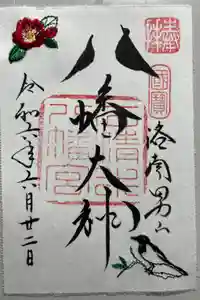 洛南男山
八幡大神
令和六年六月廿二日
石清水八幡宮
國寶